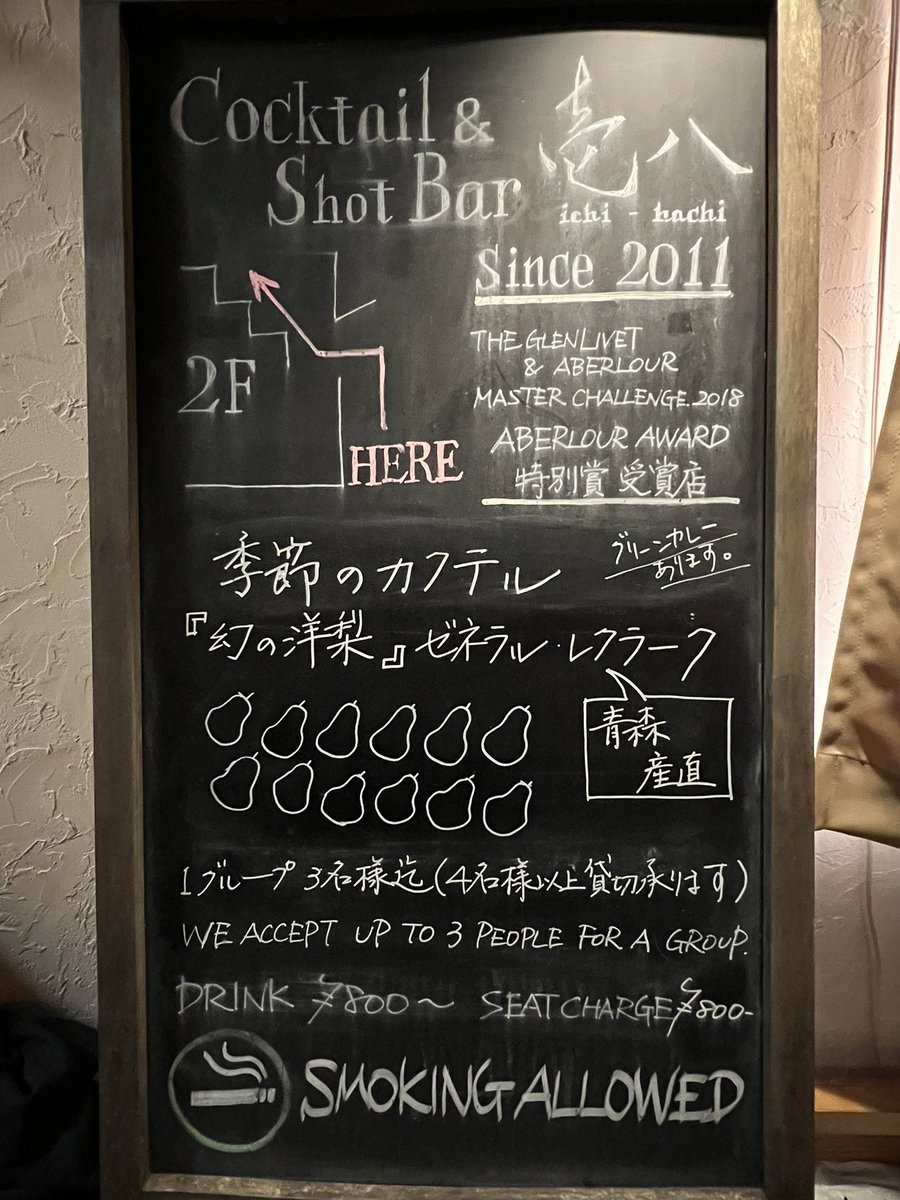 Cocktail &
Shot Bar
壱八
ichi - hachi
Since 2011
THE GLENLIVET
& ABERLOUR
MASTER CHALLENGE.2018
ABERLOUR AWARD
特別賞 受賞店
2F
HERE
季節のカクテル
グリーンカレー
あります。
『幻の洋梨』ゼネラル・レクラーク
青森
産直
1グループ 3名様迄(4名様以上貸切承ります)
WE ACCEPT UP TO 3 PEOPLE FOR A GROUP.
DRINK ¥800～ SEAT CHARGE ¥800-
SMOKING ALLOWED